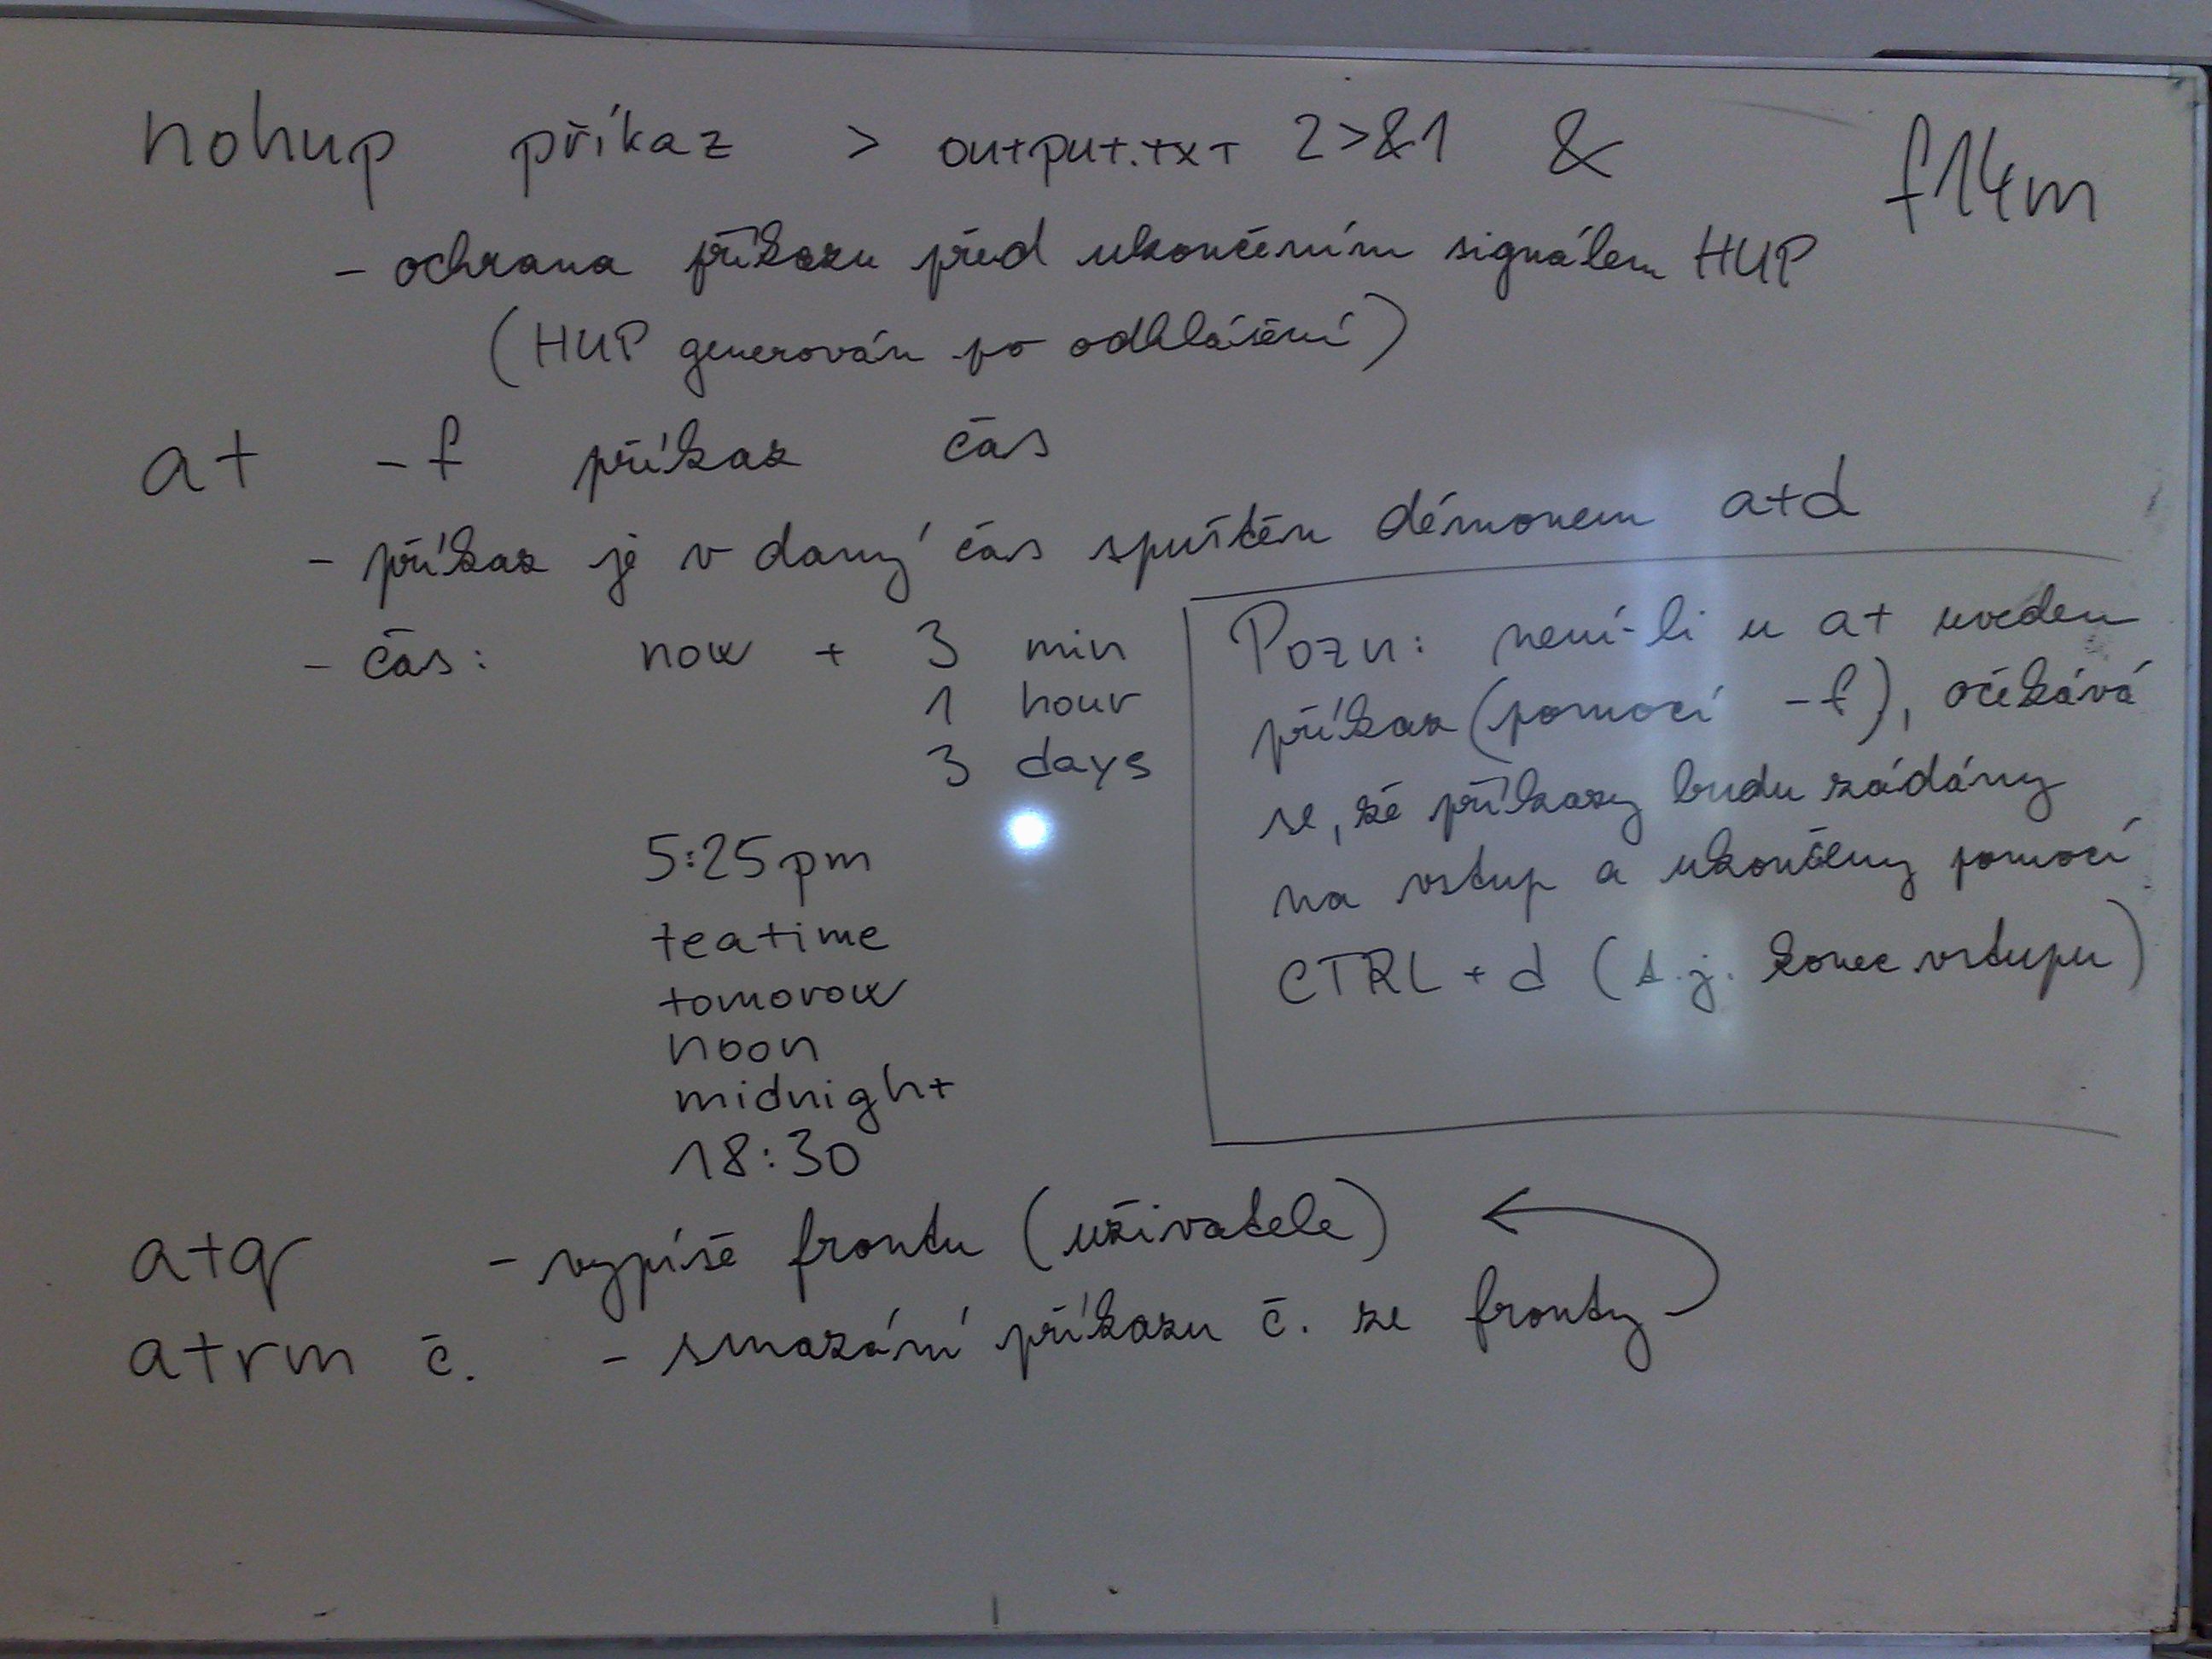 nohup příkaz > output.txt 2>&1 &
f14m
- ochrana příkazu před ukončením signálem HUP
(HUP generován po odhlášení)
at -f příkaz čas
- příkaz je v daný čas spuštěn démonem atd
- čas: now + 3 min
1 hour
3 days
5:25pm
teatime
tomorow
noon
midnight
18:30
Pozn: není-li u at uveden
příkaz (pomocí -f), očekává
se, že příkazy budu zádány
na vstup a ukončeny pomocí
CTRL + d (t.j. konec vstupu)
atq - vypíše frontu (uživatele)
atrm č. - smazání příkazu č. ze fronty